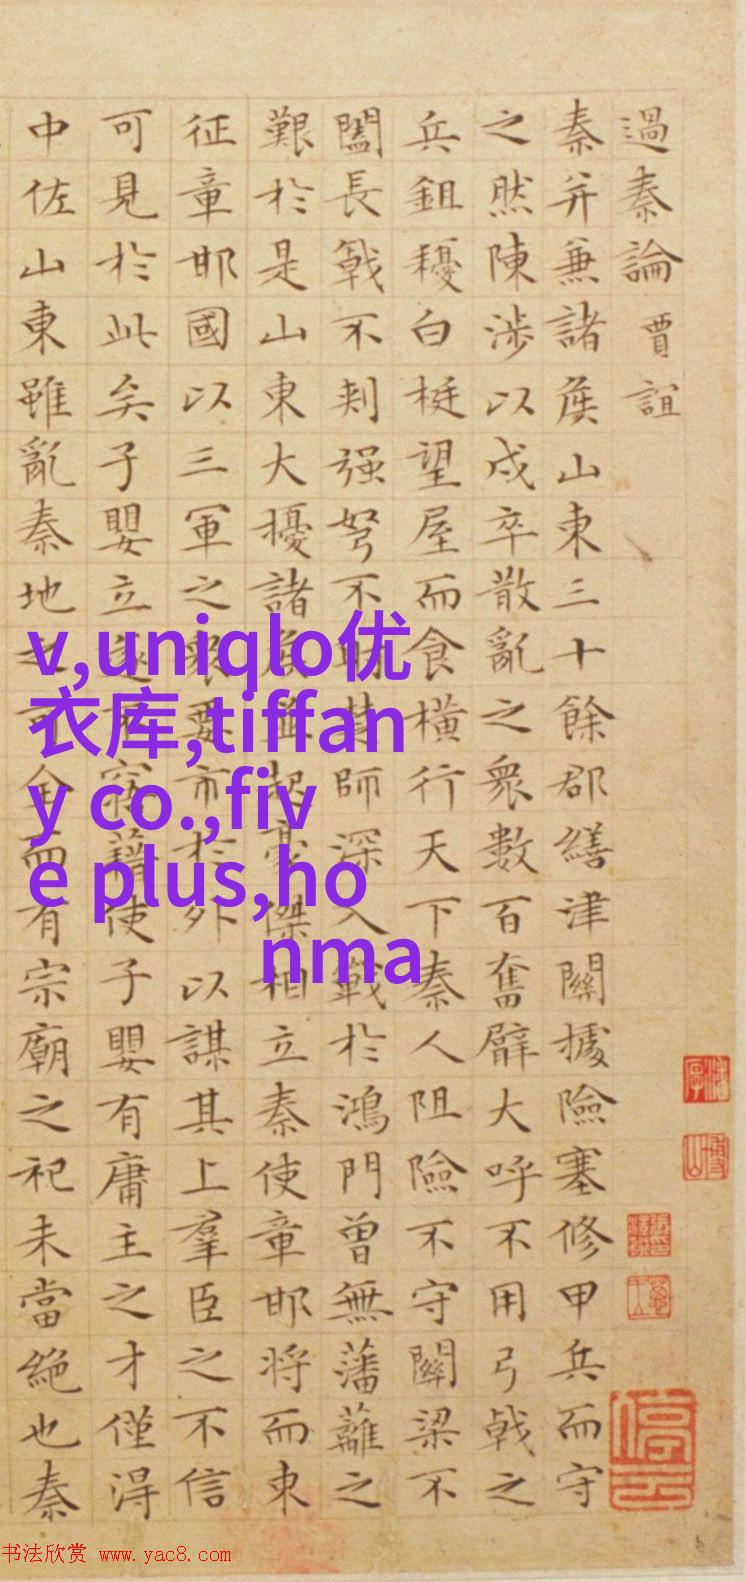 過秦論 賈誼
秦并兼諸侯山東三十餘郡繕津關據險塞修甲兵而守
之然陳涉以戍卒散亂之衆數百奮臂大呼不用弓戟之
兵鉏耰白梃望屋而食橫行天下秦人阻險不守關梁不
闔長戟不刺强弩不射楚師深入戰於鴻門曾無藩蘺之
艱於是山東大擾諸侯並起豪傑相立秦使章邯將而東
征章邯國以三軍之衆要市於外以謀其上羣臣之不信
可見於此矣子嬰立遂不寤藉使子嬰有庸主之才僅得
中佐山東雖亂秦地之可全而有宗廟之祀未當絶也秦
v,uniqlo优
衣库,tiffan
y co.,fiv
e plus,ho
nma
书法欣赏 www.yac8.com